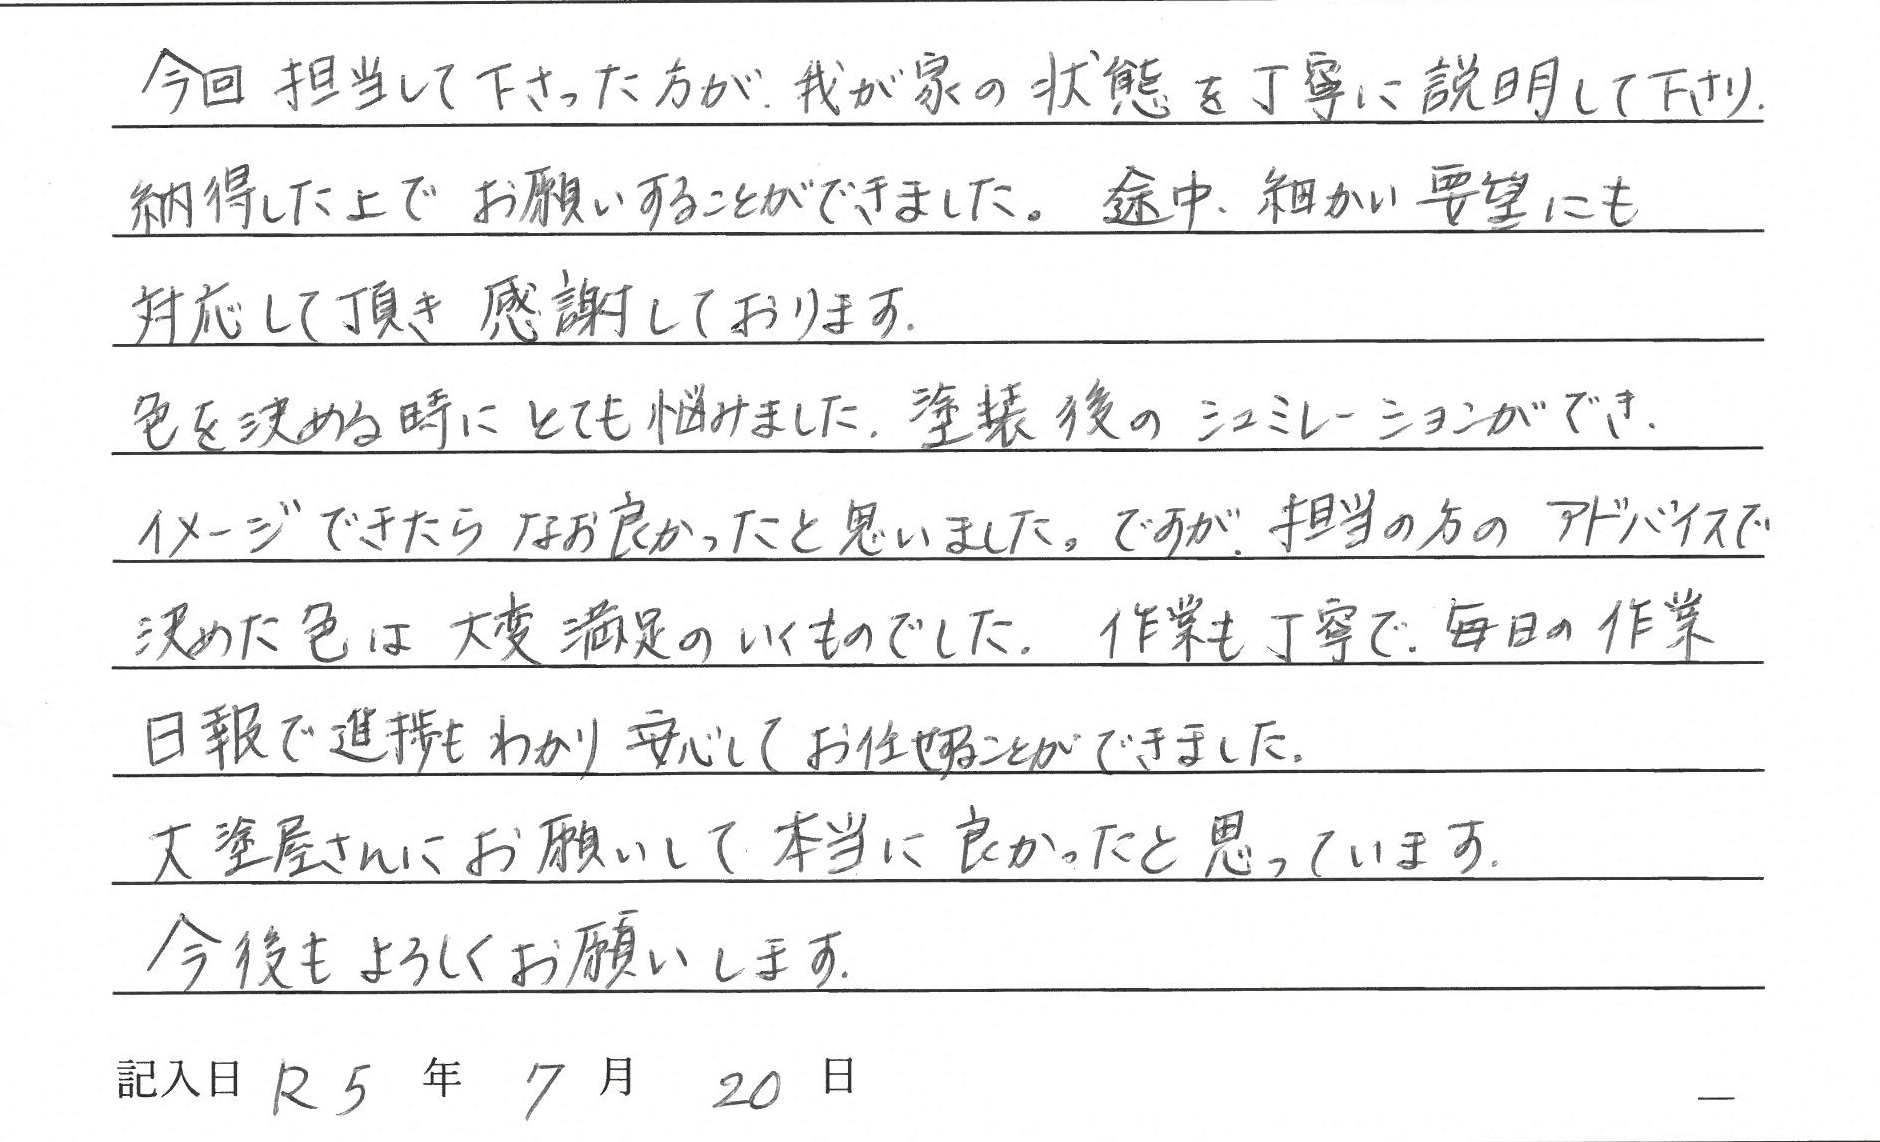 今回担当して下さった方が、我が家の状態を丁寧に説明して下さり、
納得した上でお願いすることができました。途中、細かい要望にも
対応して頂き感謝しております。
色を決める時にとても悩みました。塗装後のシュミレーションができ、
イメージできたらなお良かったと思いました。ですが、担当の方のアドバイスで
決めた色は大変満足のいくものでした。作業も丁寧で、毎日の作業
日報で進捗もわかり安心してお任せすることができました。
大塗屋さんにお願いして本当に良かったと思っています。
今後もよろしくお願いします。
記入日 R5年 7月 20日